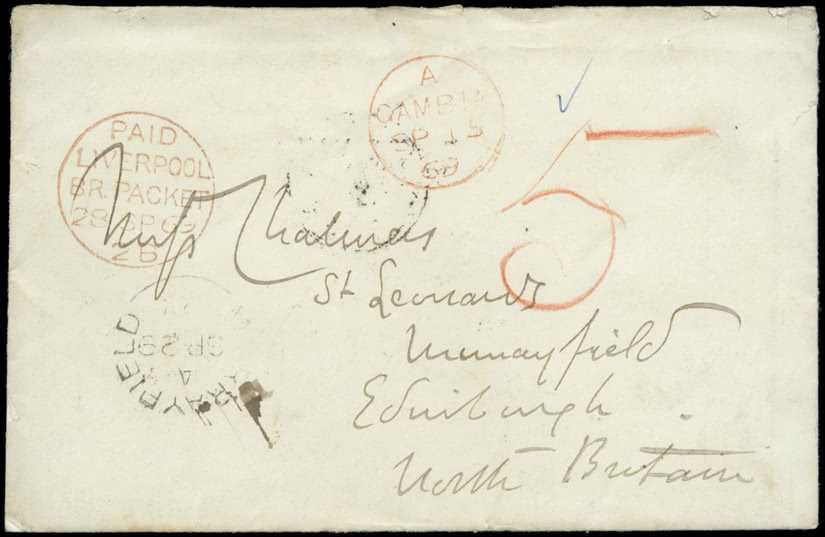 A
GAMBIA
SP 15
69
5
PAID
LIVERPOOL
BR. PACKET
28 SP 69
2B
Miss Chalmers
St Leonards
Murrayfield
Edinburgh
North Britain
RAYFIELD
A
SP 29